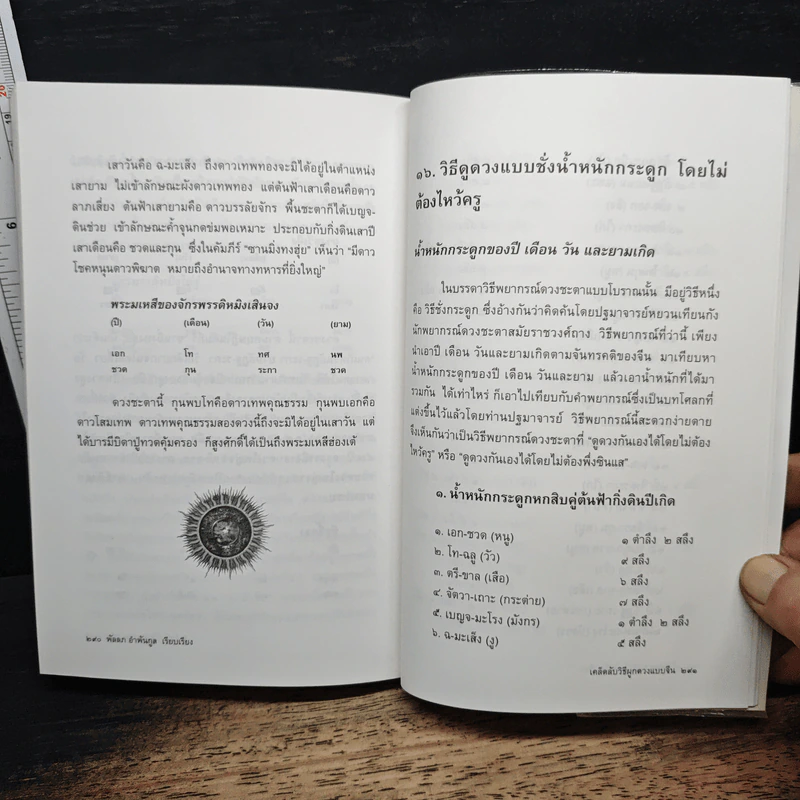 เสาวันคือ ฉ-มะเส็ง ถึงดาวเทพทองจะมิได้อยู่ในตำแหน่ง
เสายาม ไม่เข้าลักษณะผังดาวเทพทอง แต่ต้นฟ้าเสาเดือนคือดาว
ลาภเสี่ยง ต้นฟ้าเสายามคือ ดาวบรรลัยจักร พื้นชะตาก็ได้เบญจ-
ดินช่วย เข้าลักษณะค้ำจุนกดข่มพอเหมาะ ประกอบกับกิ่งดินเสาปี
เสาเดือนคือ ชวดและกุน ซึ่งในคัมภีร์ "ซานมิ่งทงฮุ่ย" เห็นว่า "มีดาว
โชคหนุนดาวพิฆาต หมายถึงอำนาจทางทหารที่ยิ่งใหญ่"
พระมเหสีของจักรพรรดิหมิงเสินจง
(ปี) (เดือน) (วัน) (ยาม)
เอก โท ทศ นพ
ชวด กุน ระกา ชวด
ดวงชะตานี้ กุนพบโทคือดาวเทพคุณธรรม กุนพบเอกคือ
ดาวโสมเทพ ดาวเทพคุณธรรมสองดวงนี้ถึงจะมิได้อยู่ในเสาวัน แต่
ได้บารมีบิดาปู่ทวดคุ้มครอง ก็สูงศักดิ์ได้เป็นถึงพระมเหสีฮ่องเต้
๒๙๐ พัลลภ อำพันกูล เรียบเรียง
๑๖. วิธีดูดวงแบบชั่งน้ำหนักกระดูก โดยไม่
ต้องไหว้ครู
น้ำหนักกระดูกของปี เดือน วัน และยามเกิด
ในบรรดาวิธีพยากรณ์ดวงชะตาแบบโบราณนั้น มีอยู่วิธีหนึ่ง
คือ วิธีชั่งกระดูก ซึ่งอ้างกันว่าคิดค้นโดยปฐมาจารย์หยวนเทียนกัง
นักพยากรณ์ดวงชะตาสมัยราชวงศ์ถาง วิธีพยากรณ์ที่ว่านี้ เพียง
นำเอาปี เดือน วันและยามเกิดตามจันทรคติของจีน มาเทียบหา
น้ำหนักกระดูกของปี เดือน วันและยาม แล้วเอาน้ำหนักที่ได้มา
รวมกัน ได้เท่าไหร่ ก็เอาไปเทียบกับคำพยากรณ์ซึ่งเป็นบทโศลกที่
แต่งขึ้นไว้แล้วโดยท่านปฐมาจารย์ วิธีพยากรณ์นี้สะดวกง่ายดาย
จึงเห็นกันว่าเป็นวิธีพยากรณ์ดวงชะตาที่ "ดูดวงกันเองได้โดยไม่ต้อง
ไหว้ครู" หรือ "ดูดวงกันเองได้โดยไม่ต้องพึ่งซินแส"
๑. น้ำหนักกระดูกหกสิบคู่ต้นฟ้ากิ่งดินปีเกิด
๑. เอก-ชวด (หนู) ๑ ตำลึง ๒ สลึง
๒. โท-ฉลู (วัว) ๙ สลึง
๓. ตรี-ขาล (เสือ) ๖ สลึง
๔. จัตวา-เถาะ (กระต่าย) ๗ สลึง
๕. เบญจ-มะโรง (มังกร) ๑ ตำลึง ๒ สลึง
๖. ฉ-มะเส็ง (งู) ๕ สลึง
เคล็ดลับวิธีผูกดวงแบบจีน ๒๙๑